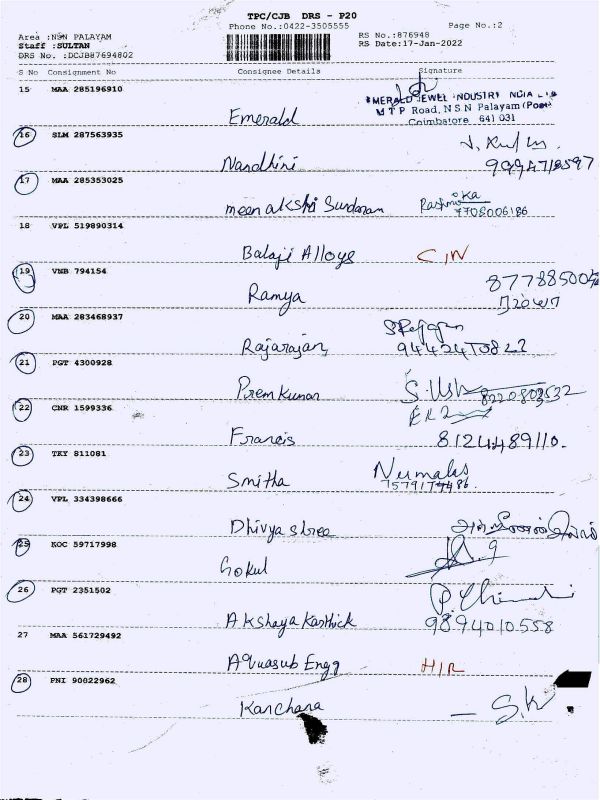 TPC/CJB DRS - P20
Phone No.:0422-3505555
Page No.:2
Area :NSN PALAYAM
RS No.:876948
Staff :SULTAN
RS Date:17-Jan-2022
DRS No. :DCJB87694802
S No Consignment No Consignee Details Signature
15 MAA 285196910
EMERALD JEWEL INDUSTRY INDIA
M T P Road, N S N Palayam (Post)
Coimbatore 641 031
Emerald
16 SLM 287563935
Nandhini
17 MAA 285353025
meenakshi Sundaram
7708006186
18 VPL 519890314
Balaji Alloys C/N
19 VNB 794154
Ramya
ரம்யா
20 MAA 283468937
Rajarajan
21 PGT 4300928
Prem Kumar S. Usha 8220803532
22 CNR 1599336
Francis 8124489110.
23 TKY 811081
Smitha Nirmala
24 VPL 334398666
Dhivya shree
25 KOC 59717998
Gokul
26 PGT 2351502
Akshaya Karthick 9894010558
27 MAA 561729492
Aquasub Engg H/R
28 PNI 90822962
Kanchana - S.K